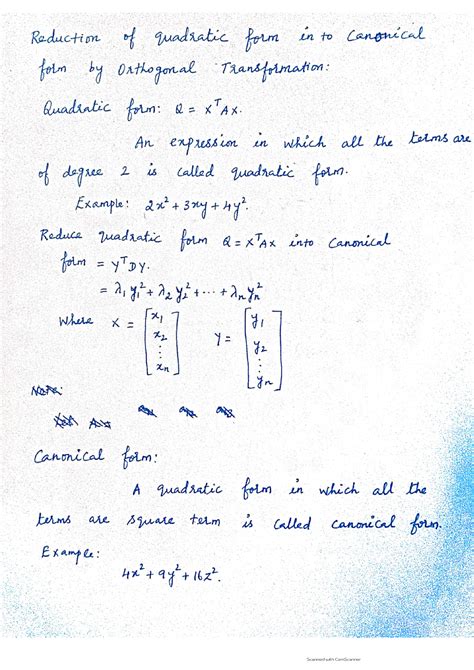 Reduction of quadratic form in to Canonical
form by Orthogonal Transformation:
Quadratic form: Q = XᵀAX.
An expression in which all the terms are
of degree 2 is called quadratic form.
Example: 2x² + 3xy + 4y².
Reduce quadratic form Q = XᵀAX into canonical
form = YᵀDY.
= λ₁y₁² + λ₂y₂² + ... + λₙyₙ²
Where X = [x₁ x₂ ⋮ xₙ] Y = [y₁ y₂ ⋮ yₙ]
Canonical form:
A quadratic form in which all the
terms are square term is called canonical form.
Example:
4x² + 9y² + 16z².
Scanned with CamScanner